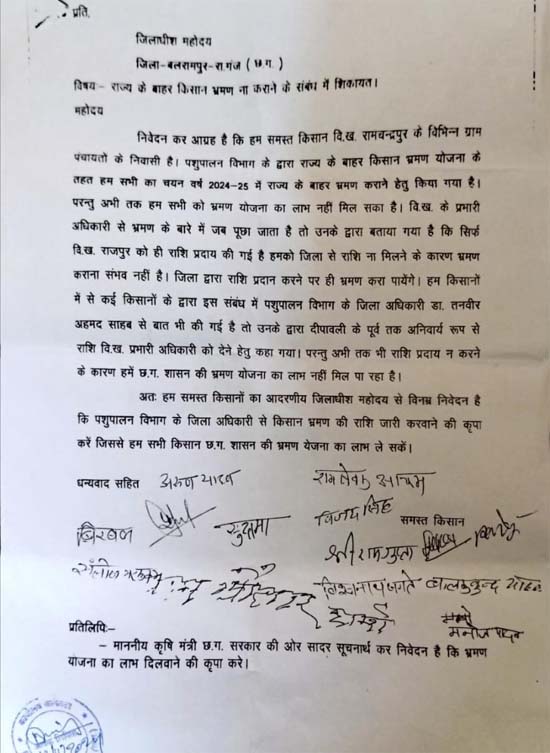 प्रति,
जिलाधीश महोदय
जिला-बलरामपुर-रा.गंज (छ.ग.)
विषय- राज्य के बाहर किसान भ्रमण ना कराने के संबंध में शिकायत।
महोदय
निवेदन कर आग्रह है कि हम समस्त किसान वि.ख. रामचन्द्रपुर के विभिन्न ग्राम
पंचायतो के निवासी है। पशुपालन विभाग के द्वारा राज्य के बाहर किसान भ्रमण योजना के
तहत हम सभी का चयन वर्ष 2024-25 में राज्य के बाहर भ्रमण कराने हेतु किया गया है।
परन्तु अभी तक हम सभी को भ्रमण योजना का लाभ नहीं मिल सका है। वि.ख. के प्रभारी
अधिकारी से भ्रमण के बारे में जब पूछा जाता है तो उनके द्वारा बताया गया है कि सिर्फ
वि.ख. राजपुर को ही राशि प्रदाय की गई है हमको जिला से राशि ना मिलने के कारण भ्रमण
कराना संभव नहीं है। जिला द्वारा राशि प्रदान करने पर ही भ्रमण करा पायेंगे। हम किसानों
में से कई किसानों के द्वारा इस संबंध में पशुपालन विभाग के जिला अधिकारी डा. तनवीर
अहमद साहब से बात भी की गई है तो उनके द्वारा दीपावली के पूर्व तक अनिवार्य रूप से
राशि वि.ख. प्रभारी अधिकारी को देने हेतु कहा गया। परन्तु अभी तक भी राशि प्रदाय न करने
के कारण हमें छ.ग. शासन की भ्रमण योजना का लाभ नहीं मिल पा रहा है।
अतः हम समस्त किसानों का आदरणीय जिलाधीश महोदय से विनम्र निवेदन है
कि पशुपालन विभाग के जिला अधिकारी से किसान भ्रमण की राशि जारी करवाने की कृपा
करें जिससे हम सभी किसान छ.ग. शासन की भ्रमण येजना का लाभ ले सकें।
धन्यवाद सहित अरुन यादव
विजय सिंह
समस्त किसान
सुषमा
श्रीराम गुप्ता
बालमुकुन्द यादव
मनोज यादव
प्रतिलिपि:-
- माननीय कृषि मंत्री छ.ग. सरकार की ओर सादर सूचनार्थ कर निवेदन है कि भ्रमण
योजना का लाभ दिलवाने की कृपा करे।